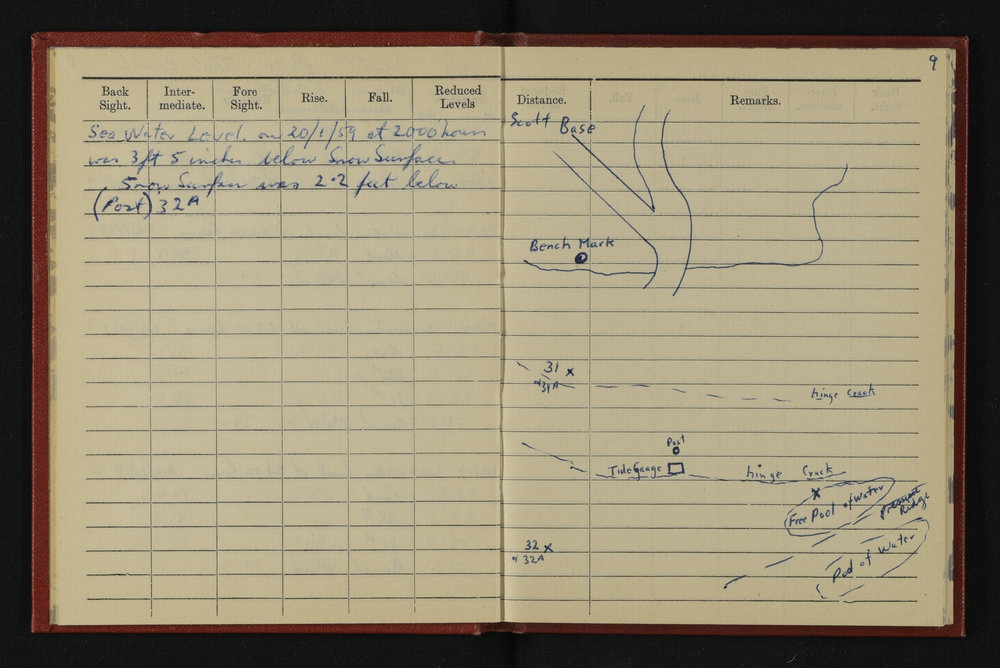 9
Back Sight. Inter-mediate. Fore Sight. Rise. Fall. Reduced Levels Distance. Remarks.
Sea Water Level. on 20/1/59 at 2000 hours
was 3 ft 5 inches below Snow Surface.
Snow Surface was 2.2 feet below
(Post) 32A
Scott Base
Bench Mark
31 x
31A
hinge Crack
Post
Tide Gauge
hinge Crack
x
Free Pool of Water
pressure Ridge
32 x
32A
Pool of Water